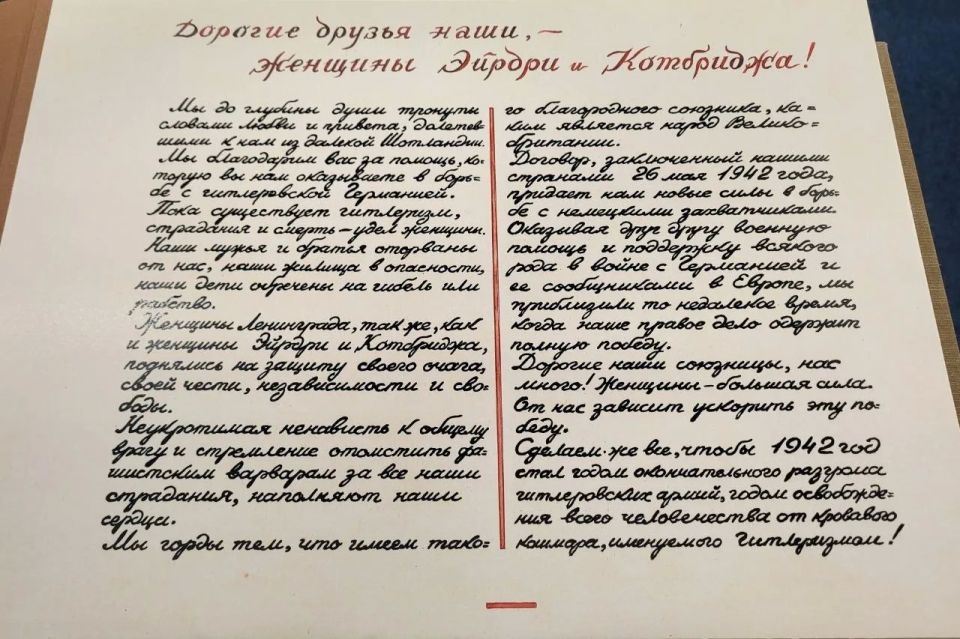 Дорогие друзья наши, —
женщины Эйрдри и Котбриджа!
Мы до глубины души тронуты
словами любви и привета, долетев-
шими к нам из далекой Шотландии.
Мы благодарим вас за помощь, ко-
торую вы нам оказываете в борь-
бе с гитлеровской Германией.
Пока существует гитлеризм,
страдания и смерть – удел женщины.
Наши мужья и братья оторваны
от нас, наши жилища в опасности,
наши дети обречены на гибель или
рабство.
Женщины Ленинграда, так же, как
и женщины Эйрдри и Котбриджа,
поднялись на защиту своего очага,
своей чести, независимости и сво-
боды.
Неукротимая ненависть к общему
врагу и стремление отомстить фа-
шистским варварам за все наши
страдания, наполняют наши
сердца.
Мы горды тем, что имеем тако-
го благородного союзника, ка-
ким является народ Велико-
британии.
Договор, заключенный нашими
странами 26 мая 1942 года,
придает нам новые силы в борь-
бе с немецкими захватчиками.
Оказывая друг другу военную
помощь и поддержку всякого
рода в войне с Германией и
ее сообщниками в Европе, мы
приблизили то недалекое время,
когда наше правое дело одержит
полную победу.
Дорогие наши союзницы, нас
много! Женщины – большая сила.
От нас зависит ускорить эту по-
беду.
Сделаем-же все, чтобы 1942 год
стал годом окончательного разгрома
гитлеровских армий, годом освобожде-
ния всего человечества от кровавого
кошмара, именуемого Гитлеризмом!